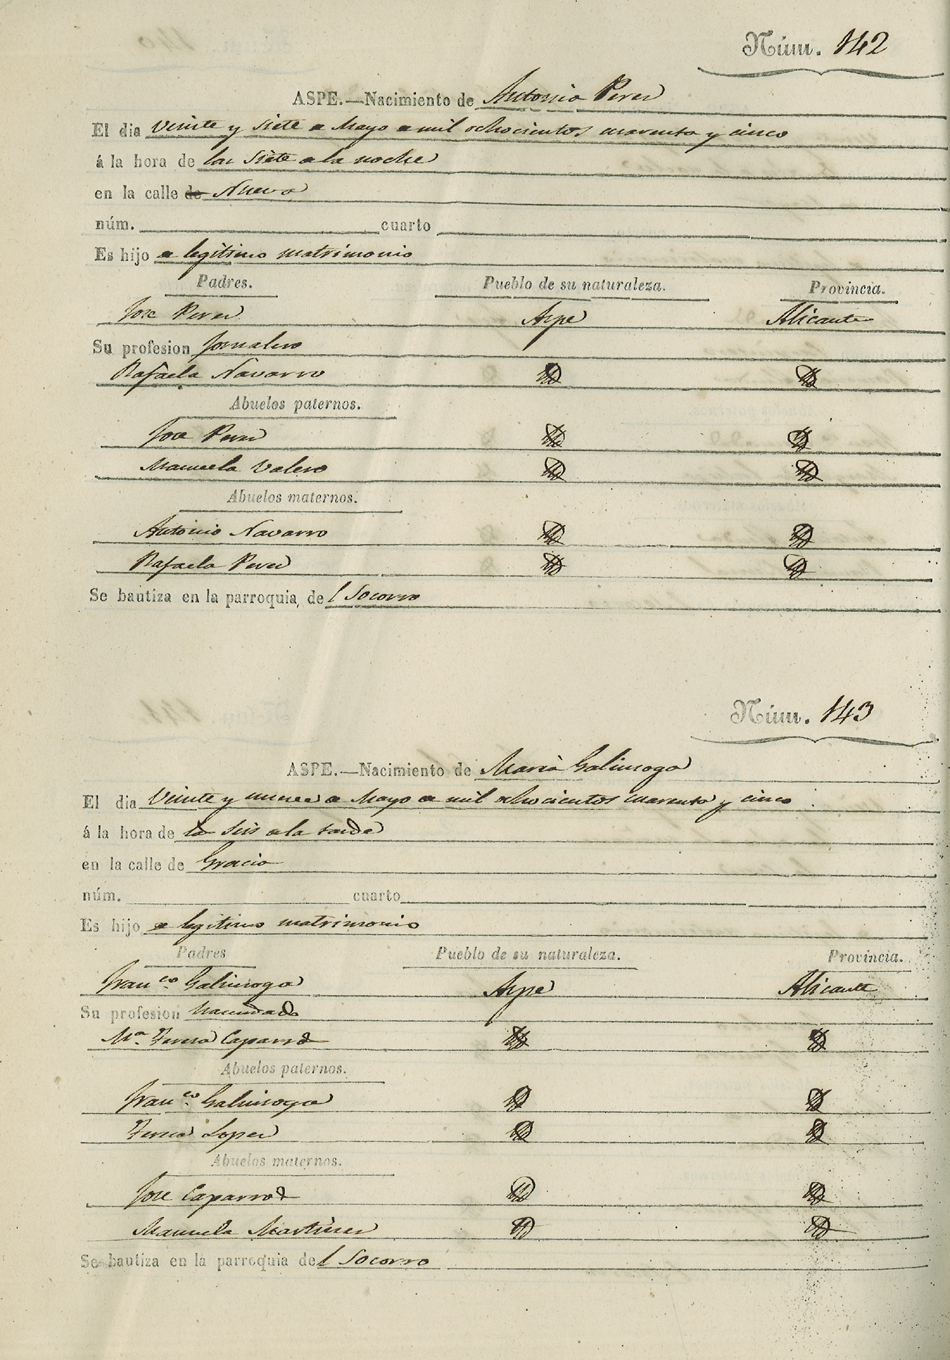 Núm. 142
ASPE.—Nacimiento de Antonio Perez
El dia Veinte y Siete de Mayo de mil ochocientos cuarenta y cinco
á la hora de las Siete de la noche
en la calle de Nueva
núm. cuarto
Es hijo de legitimo matrimonio
Padres. Pueblo de su naturaleza. Provincia.
Jose Perez Aspe Alicante
Su profesion Jornalero
Rafaela Navarro Id Id
Abuelos paternos.
Jose Perez Id Id
Manuela Valero Id Id
Abuelos maternos.
Antonio Navarro Id Id
Rafaela Perez Id Id
Se bautiza en la parroquia del Socorro
Núm. 143
ASPE.—Nacimiento de Maria Galinsoga
El dia Veinte y nueve de Mayo de mil ochocientos cuarenta y cinco
á la hora de la Seis de la tarde
en la calle de Gracia
núm. cuarto
Es hijo de legitimo matrimonio
Padres Pueblo de su naturaleza. Provincia.
Franco. Galinsoga Aspe Alicante
Su profesion hacendado
Ma. Teresa Caparros Id Id
Abuelos paternos.
Franco. Galinsoga Id Id
Teresa Lopez Id Id
Abuelos maternos.
Jose Caparros Id Id
Manuela Martinez Id Id
Se bautiza en la parroquia del Socorro